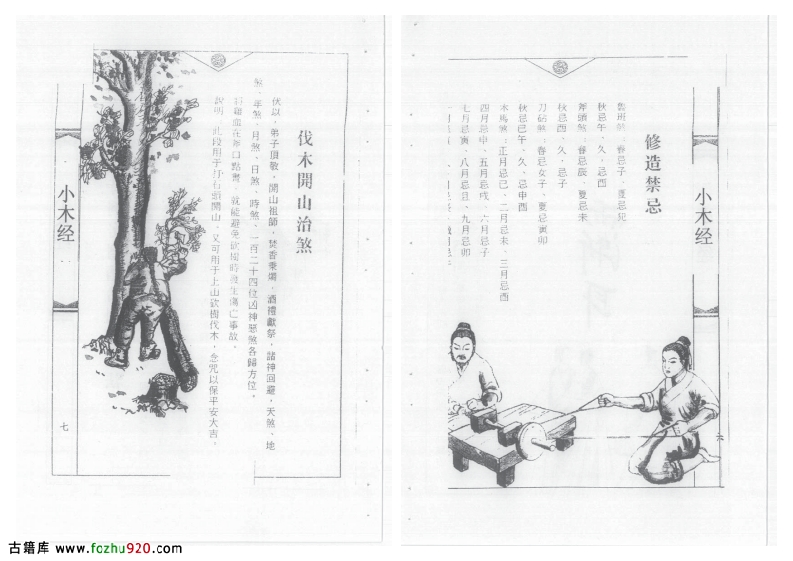 修造禁忌
魯班煞：春忌子、夏忌兒
秋忌午、久、忌酉
斧頭煞：春忌辰、夏忌未
秋忌酉、久、忌子
刀砧煞：春忌女子、夏忌寅卯
秋忌巳午、久、忌申酉
木馬煞：正月忌巳、二月忌未、三月忌酉
四月忌申、五月忌戌、六月忌子
七月忌寅、八月忌丑、九月忌卯
小木经
六
伐木開山治煞
伏以，弟子頂敬，開山祖師，焚香秉燭，酒禮獻祭，諸神回避，天煞、地
煞、年煞、月煞、日煞、時煞、一百二十四位凶神惡煞各歸方位。
雞血在斧口點煞，就能避免砍樹時發生傷亡事故。
說明：此段用于打石頭開山，又可用于上山砍樹伐木，念咒以保平安大吉。
小木经
七
古籍库 www.fozhu920.com